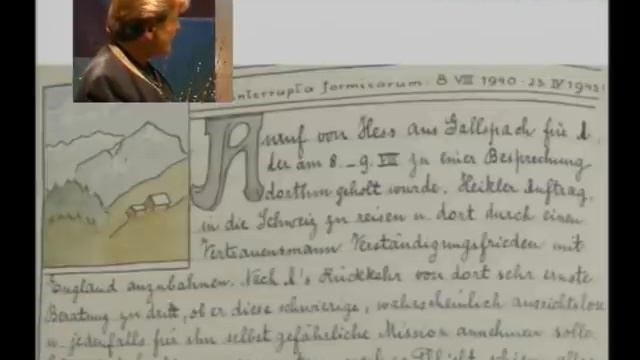 interrupta formicarum · 8 VIII 1940 - 23 IV 1942!
Anruf von Hess aus Gallspach für A.
der am 8. - 9. VIII zu einer Besprechung
dorthin geholt wurde. Heikler Auftrag,
in die Schweiz zu reisen u. dort durch einen
Vertrauensmann Verständigungsfrieden mit
England anzubahnen. Nach A's Rückkehr von dort sehr ernste
Beratung zu dritt, ob er diese schwierige, wahrscheinlich aussichtslose
u. jedenfalls für ihn selbst gefährliche Mission annehmen solle